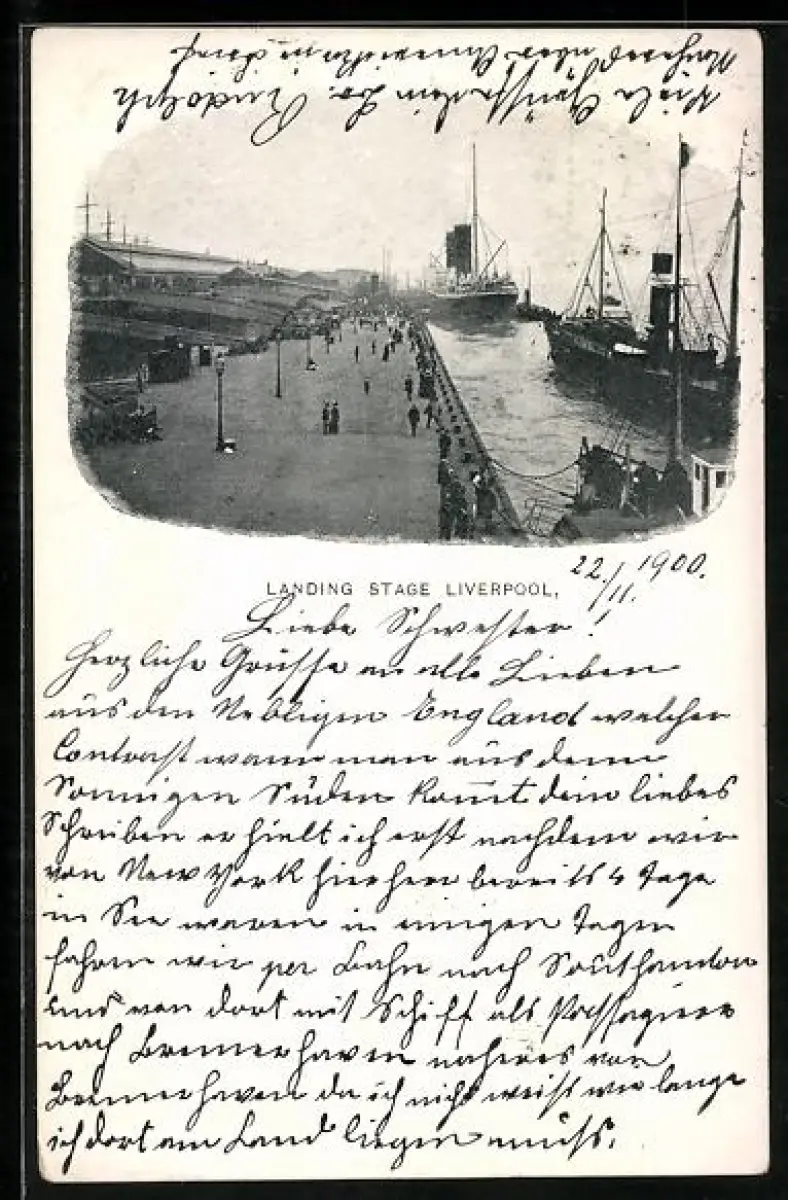 LANDING STAGE LIVERPOOL,
22./11. 1900.
Liebe Schwester!
Herzliche Grüsse an alle Lieben
aus den Nebligen England welcher
Contrast wann man aus dem
Sonnigen Süden kom̅t dein liebes
Schreiben erhielt ich erst nachdem wir
von New York hierher bereits 4 Tage
in See waren in einigen Tagen
fahren wir per Bahn nach Southamton
und von dort mit Schiff als Passagiere
nach Bremerhaven näheres von
Bremerhaven da ich nicht weiss wie lange
ich dort am Land liegen muss.
Viele Grüsse dein Br. Rudolph